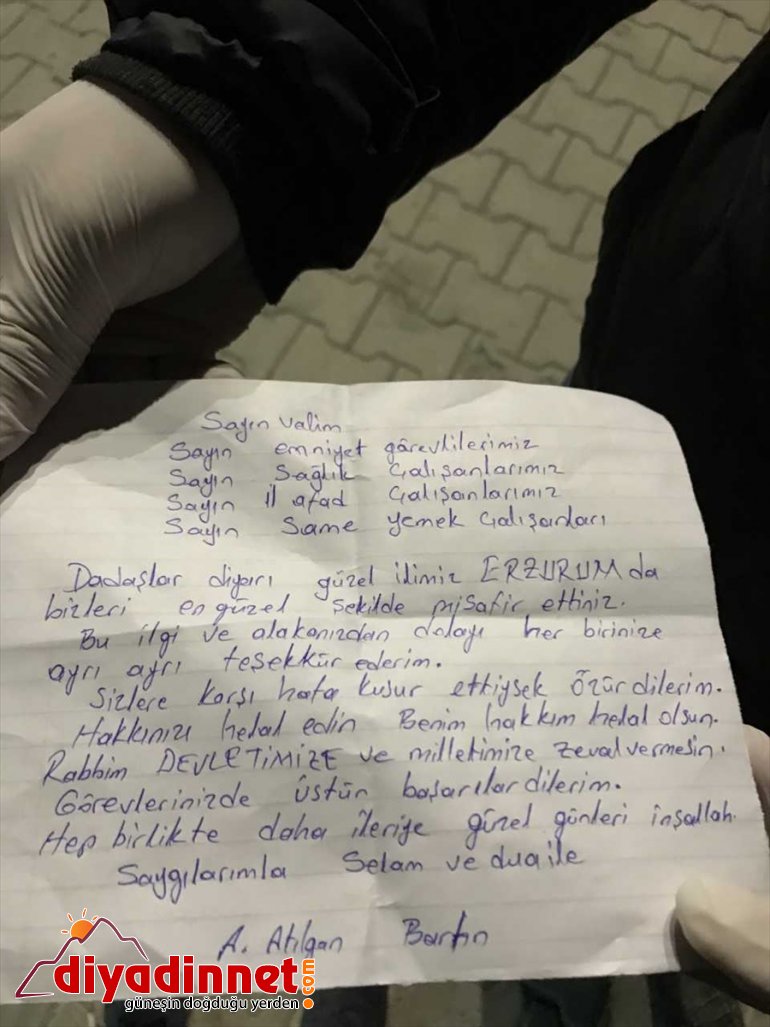 Sayın Valim
Sayın emniyet görevlilerimiz
Sayın Sağlık Çalışanlarımız
Sayın İl afad Çalışanlarımız
Sayın Same yemek Çalışanları
Dadaşlar diyarı güzel ilimiz ERZURUM da
bizleri en güzel şekilde misafir ettiniz.
Bu ilgi ve alakanızdan dolayı her birinize
ayrı ayrı teşekkür ederim.
Sizlere karşı hata kusur ettiysek Özür dilerim.
Hakkınızı helal edin Benim hakkım helal olsun.
Rabbim DEVLETİMİZE ve milletimize zeval vermesin.
Görevlerinizde üstün başarılar dilerim.
Hep birlikte daha ileriye güzel günleri inşallah.
Saygılarımla Selam ve dua ile
A. Atılgan Bartın
diyadinnet.com
güneşin doğduğu yerden